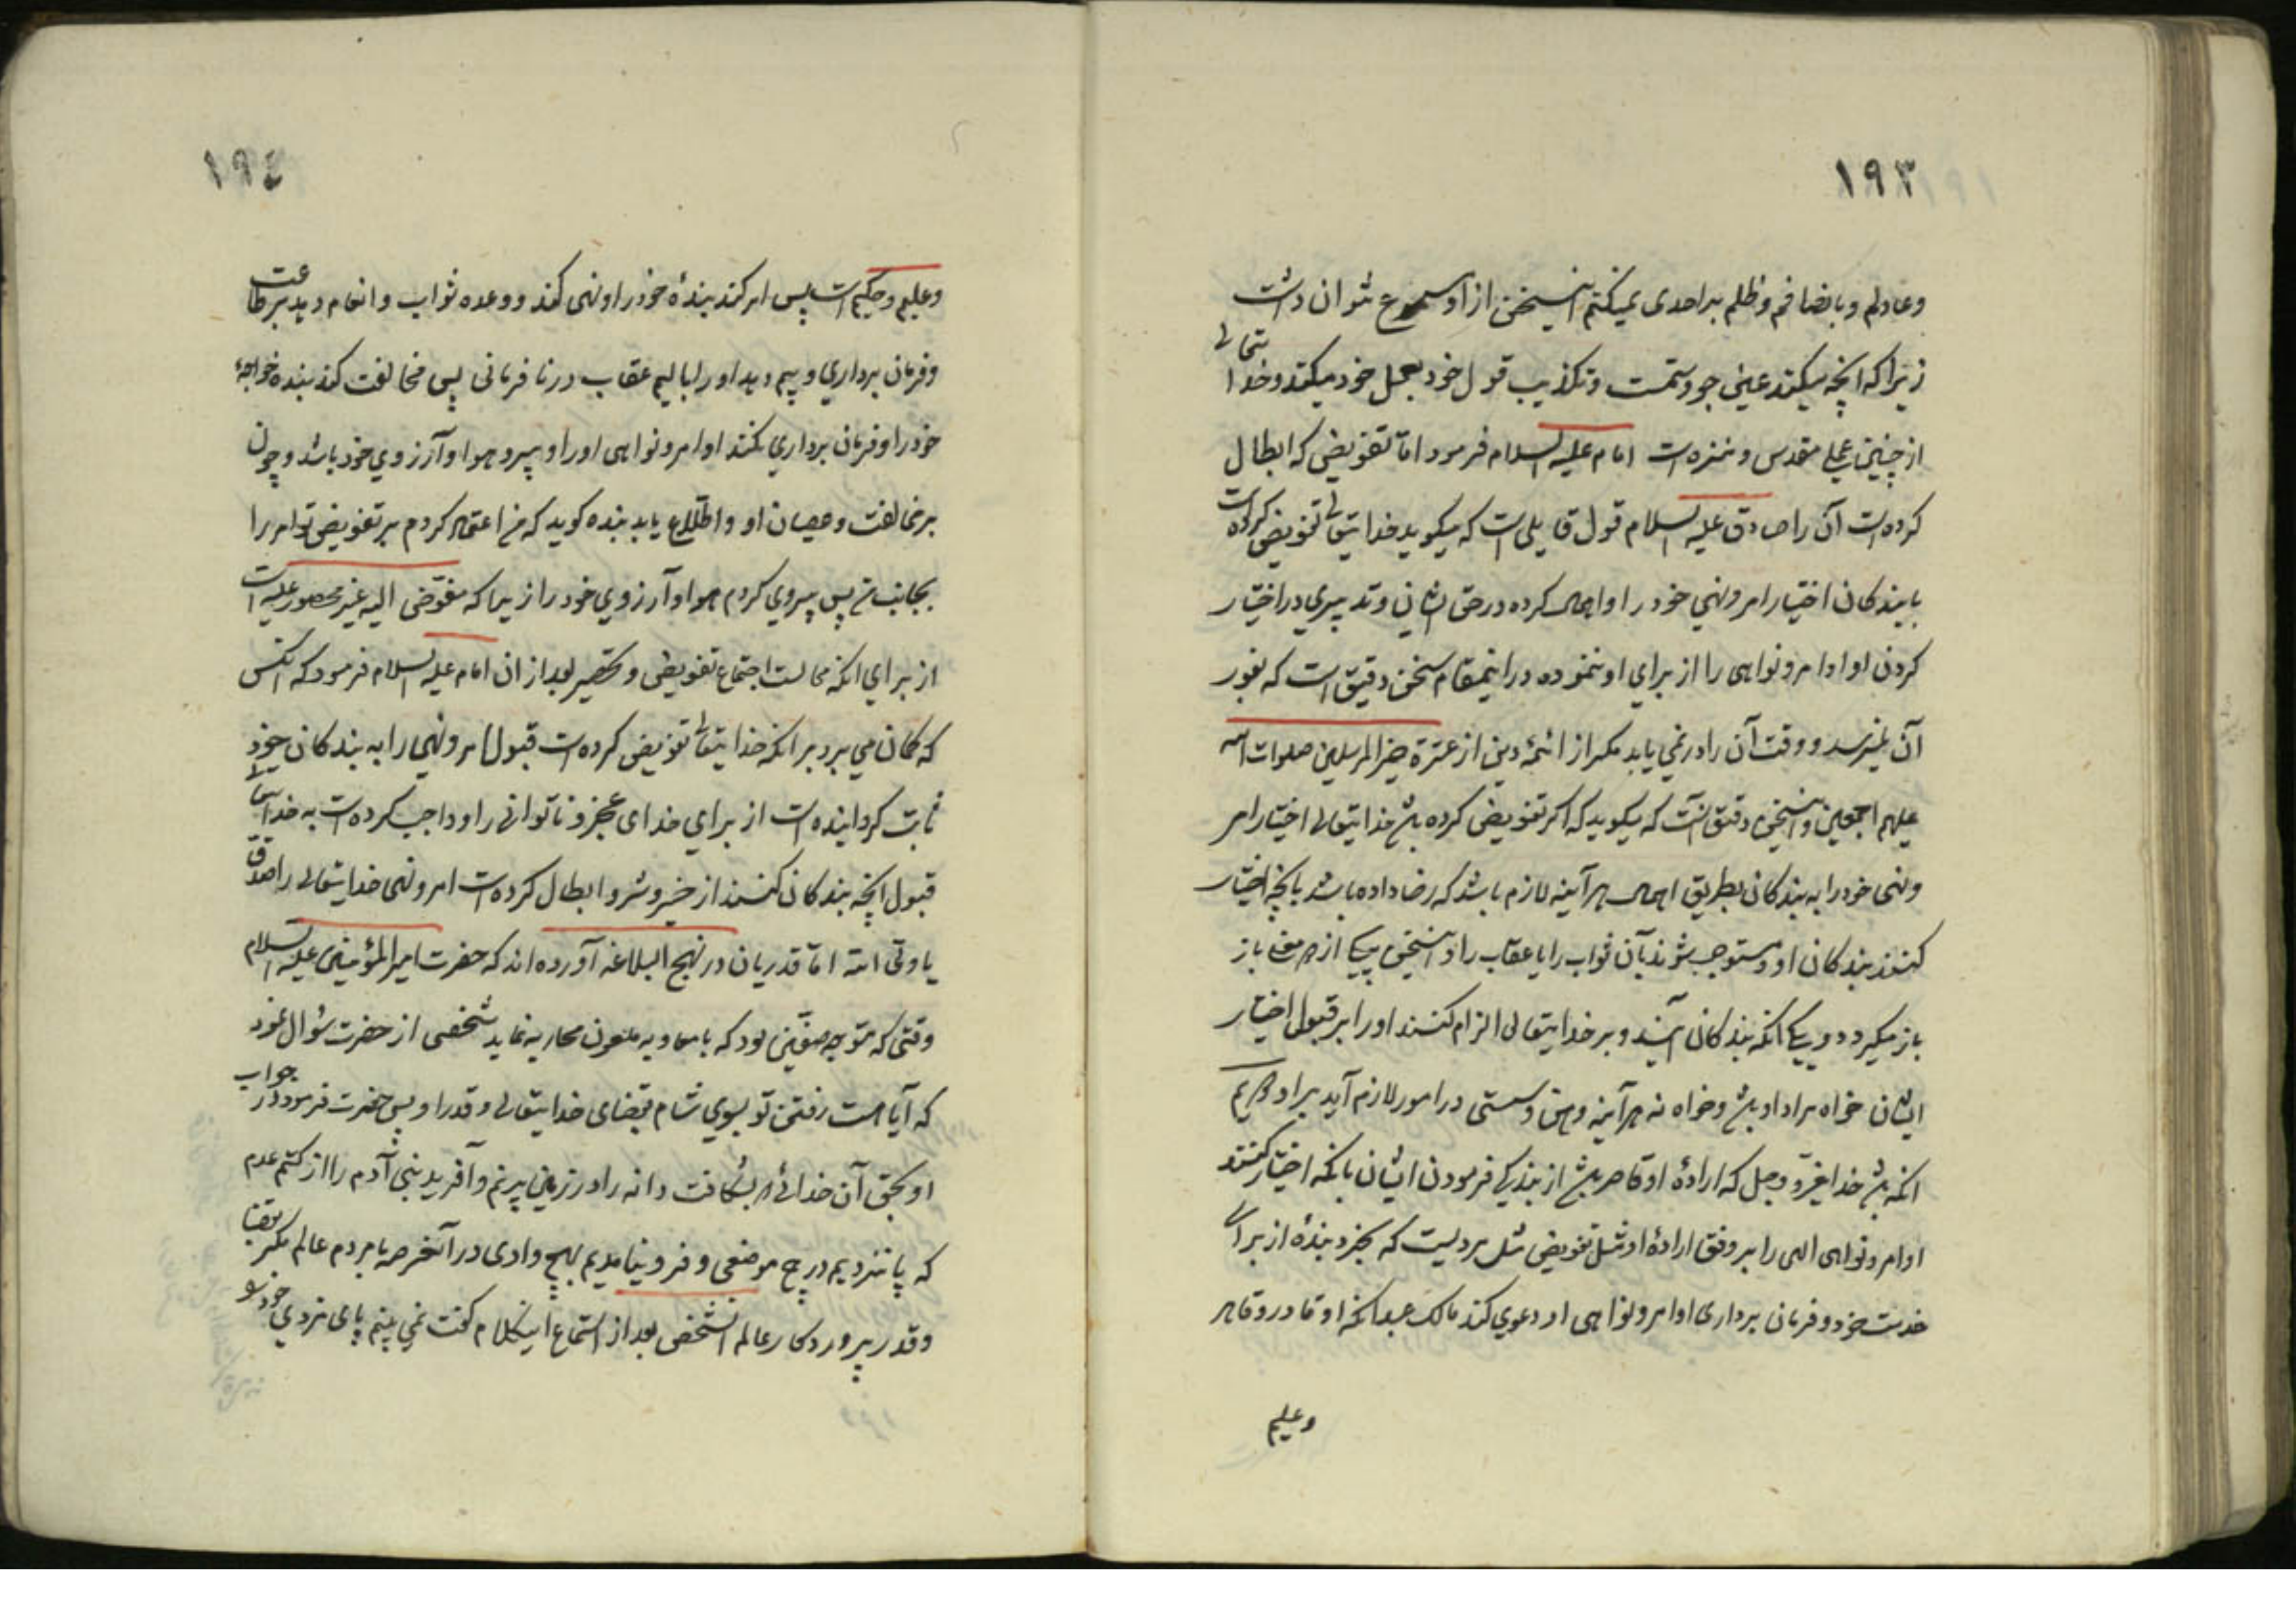 ١٩٣
وعادلم و با نصافم و ظلم بر احدی نمیکنم اینسخن از او مسموع نتوان داشت
زیرا که آنچه میکند عین جور و ستمست و تکذیب قول خود بعمل خود میکند و خدا تعالی
از چنین عملی مقدس و منزه است امام علیه السلام فرمود اما تفویضی که ابطال
کرده است آن را صادق علیه السلام قول قایلی است که میگوید خدایتعالی تفویض کرده است
با بندکان اختیار امر و نهی خود را و اهمال کرده در حق ایشان و تدبیری در اختیار
کردن او اوامر و نواهی را از برای او ننموده در اینمقام سخن دقیق است که بغور
آن نمیرسد و وقت آن را در نمی یابد مکر از ائمهٔ دین از عترة خیر المرسلین صلوات الله
علیهم اجمعین و اینسخن دقیق آنست که میکوید که اکر تفویض کرده باشد خدایتعالی اختیار امر
و نهی خود را به بندکان بطریق اهمال هر آینه لازم باشد که رضا داده باشد بآنچه اختیار
کنند بندکان او و مستوجب شوند بآن ثواب را یا عقاب را و اینسخن بیکی از دو معنی باز
باز میکردد و یکی آنکه بندکان آیند و بر خدایتعالی الزام کنند او را بر قبول اختیار
ایشان خواه مراد او باشد و خواه نه هر آینه وهن و سستی در امور لازم آید بر او دویم
آنکه باشد خدا عز و جل که ارادهٔ او قاصر باشد از بندکی فرمودن ایشان بآنکه اختیار کنند
اوامر و نواهی الهی را بر وفق ارادهٔ او مثل تفویض مثل مردیست که بخرد بندهٔ از برای
خدمت خود و فرمان برداری اوامر و نواهی او و دعوی کند مالک عبد آنکه او قادر و قاهر
وعلیم
١٩٤
وعلیم و حکیم است پس امر کند بندهٔ خود را و نهی کند و وعده ثواب و انعام دهد بر طاعت
و فرمان برداری و بیم دهد او را بالیم عقاب در نا فرمانی پس مخالفت کند بنده خواجهٔ
خود را و فرمان برداری نکند اوامر و نواهی او را و پیرو هوا و آرزوی خود باشد و چون
بر مخالفت و عصیان او و اطلاع یابد بنده کوید که من اعتماد کردم بر تفویض تو امر را
بجانب من پس پیروی کردم هوا و آرزوی خود را زیرا که مفوض الیه غیر محصور علیه است
از برای آنکه محالست اجتماع تفویض و تحصیر بعد از ان امام علیه السلام فرمود که آنکس
که کمان می برد بر آنکه خدایتعالی تفویض کرده است قبول امر و نهی را به بندکان خود
ثابت کردانیده است از برای خدای عجز و ناتوانی را و واجب کرده است به خدا تعالی
قبول آنچه بندکان کنند از خیر و شر و ابطال کرده است امر و نهی خدایتعالی را صدق
یا ولی الله اما قدریان در نهج البلاغه آورده اند که حضرت امیر المؤمنین علیه السلام
وقتی که متوجه صفین بود که با معاویه ملعون محاربه نماید شخصی از حضرت سئوال نمود
که آیا هست رفتن تو بسوی شام بقضای خدایتعالی و قدر او پس حضرت فرمود در جواب
او بحق آن خدائی که بشکافت دانه را در زمین پر نم و آفرید بنی آدم را از کتم عدم
که پا ننهادیم در هیچ موضعی و فرو نیامدیم بهیچ وادی در آنعرصه با مردم عالم مکر بقضا
و قدر پروردکار عالم آنشخص بعد از استماع اینکلام کفت نمی بینم پای مزدی خود